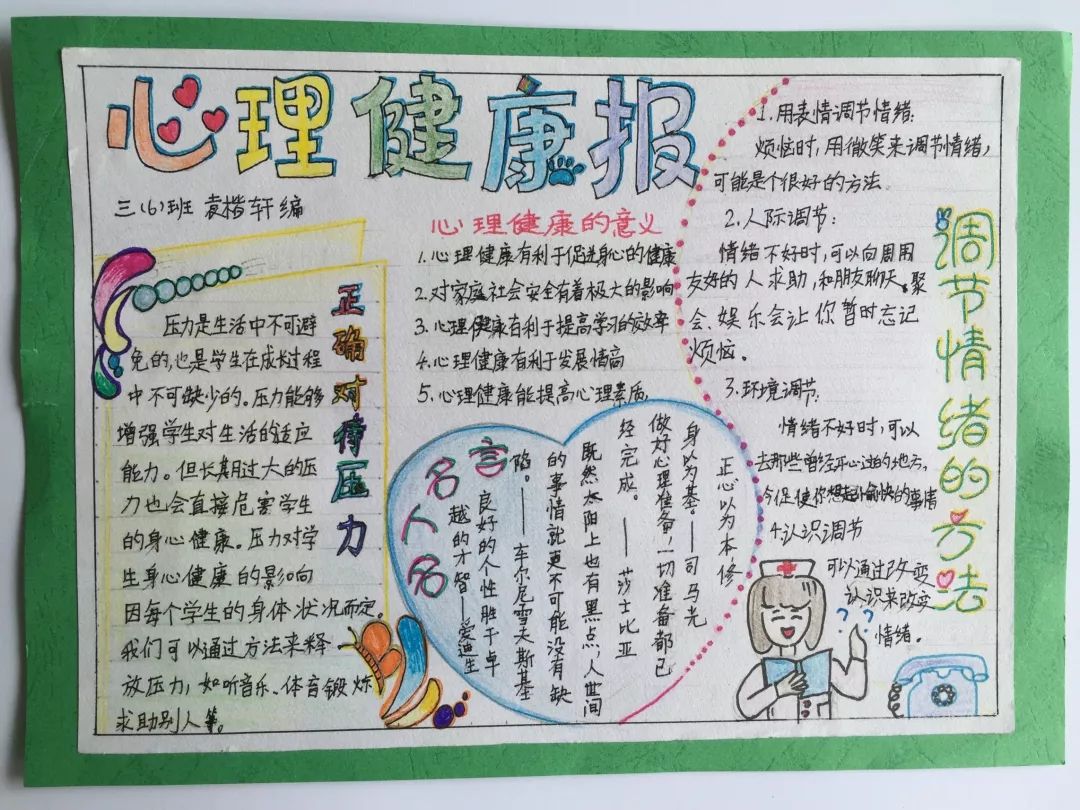 心理健康报
三(6)班 袁楷轩 编
正确对待压力
压力是生活中不可避
免的,也是学生在成长过程
中不可缺少的。压力能够
增强学生对生活的适应
能力。但长期过大的压
力也会直接危害学生
的身心健康。压力对学
生身心健康的影响
因每个学生的身体状况而定。
我们可以通过方法来释
放压力,如听音乐、体育锻炼
求助别人等。
心理健康的意义
1.心理健康有利于促进身心的健康
2.对家庭社会安全有着极大的影响
3.心理健康有利于提高学习的效率
4.心理健康有利于发展情高
5.心理健康能提高心理素质
名人名言
正心以为本修
身以为基。——司马光
做好心理准备!一切准备都已
经完成。——莎士比亚
既然太阳上也有黑点,人世间
的事情就更不可能没有缺
陷。——车尔尼雪夫斯基
良好的个性胜于卓
越的才智——爱迪生
调节情绪的方法
1.用表情调节情绪:
烦恼时,用微笑来调节情绪,
可能是个很好的方法。
2.人际调节:
情绪不好时,可以向周围
友好的人求助,和朋友聊天、聚
会、娱乐会让你暂时忘记
烦恼。
3.环境调节:
情绪不好时,可以
去那些曾经开心过的地方,
今促使你想起愉快的事情
4.认识调节
可以通过改变
认识来改变
情绪。
? ?